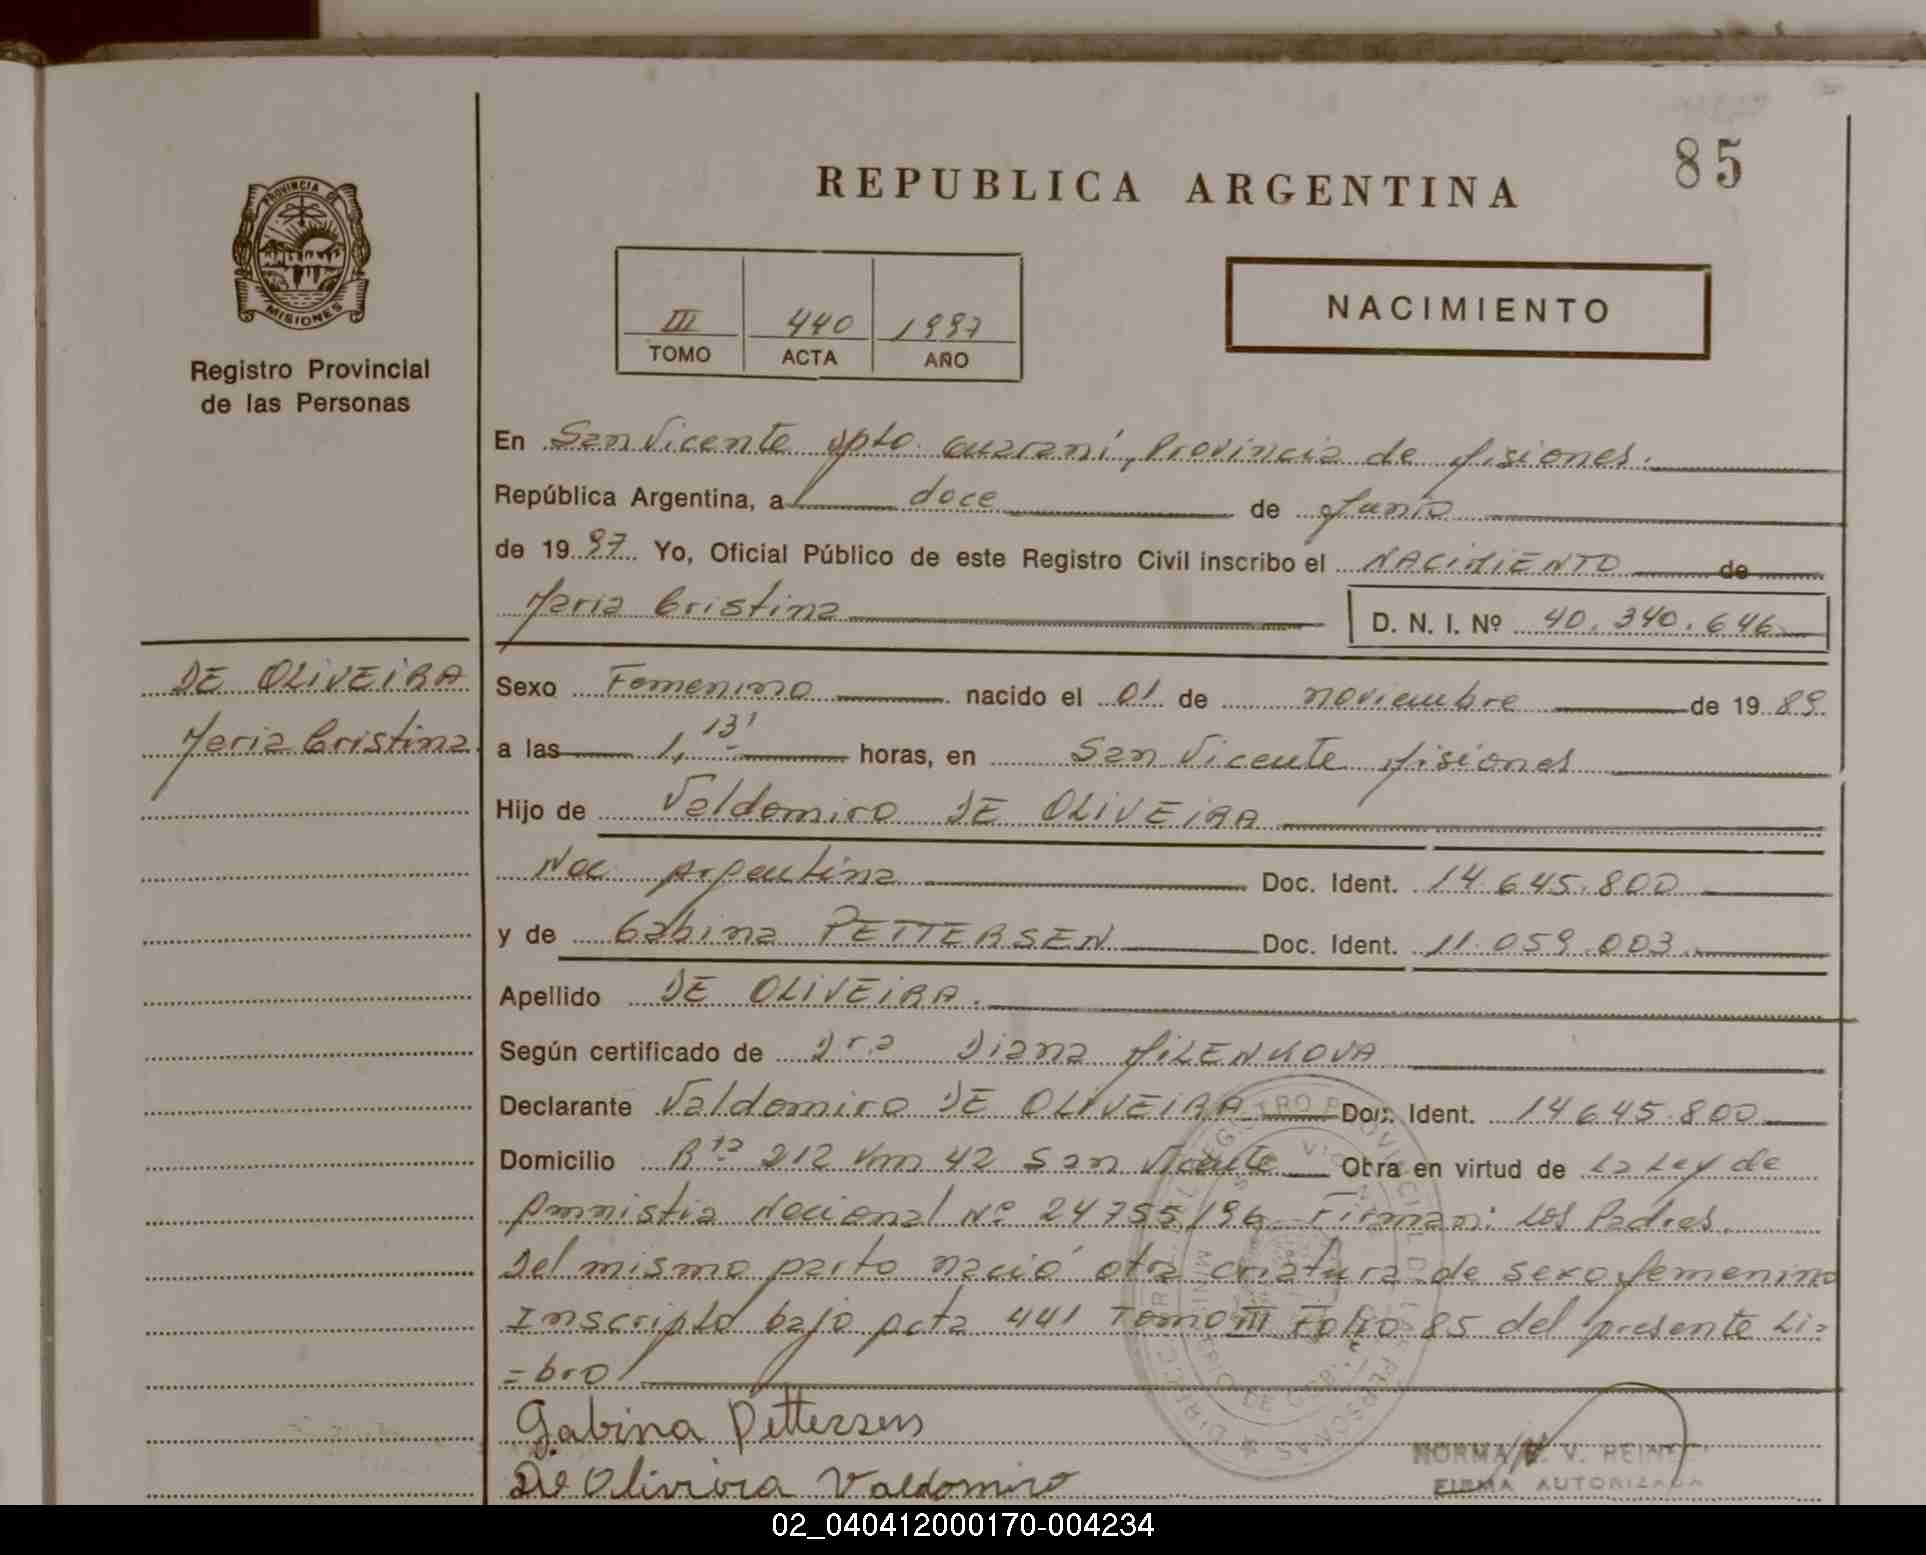 85
REPUBLICA ARGENTINA
PROVINCIA DE
MISIONES
Registro Provincial
de las Personas
III 440 1997
TOMO ACTA AÑO
NACIMIENTO
En San Vicente Dpto. Guaraní, Provincia de Misiones.
República Argentina, a doce de Junio
de 1997 Yo, Oficial Público de este Registro Civil inscribo el NACIMIENTO de
Maria Cristina D. N. I. Nº 40.340.646
DE OLIVEIRA
Maria Cristina
Sexo Femenino nacido el 01 de noviembre de 1989
a las 1,13' horas, en San Vicente Misiones
Hijo de Valdomiro DE OLIVEIRA
Nac. Argentina Doc. Ident. 14.645.800
y de Gabina PETTERSEN Doc. Ident. 11.059.003
Apellido DE OLIVEIRA.
Según certificado de Dra Diana MILENKOVA
Declarante Valdomiro DE OLIVEIRA Doc. Ident. 14.645.800
Domicilio Rta 212 Km 42 San Vicente Obra en virtud de La Ley de
Amnistia Nacional Nº 24755/96 Firman: Los Padres.
Del mismo parto nació otra criatura de sexo femenino
Inscripto bajo Acta 441 Tomo III Folio 85 del presente Li=
=bro
Gabina Pettersen
De Oliveira Valdomiro
NORMA V. REIN
FIRMA AUTORIZADA
02_040412000170-004234